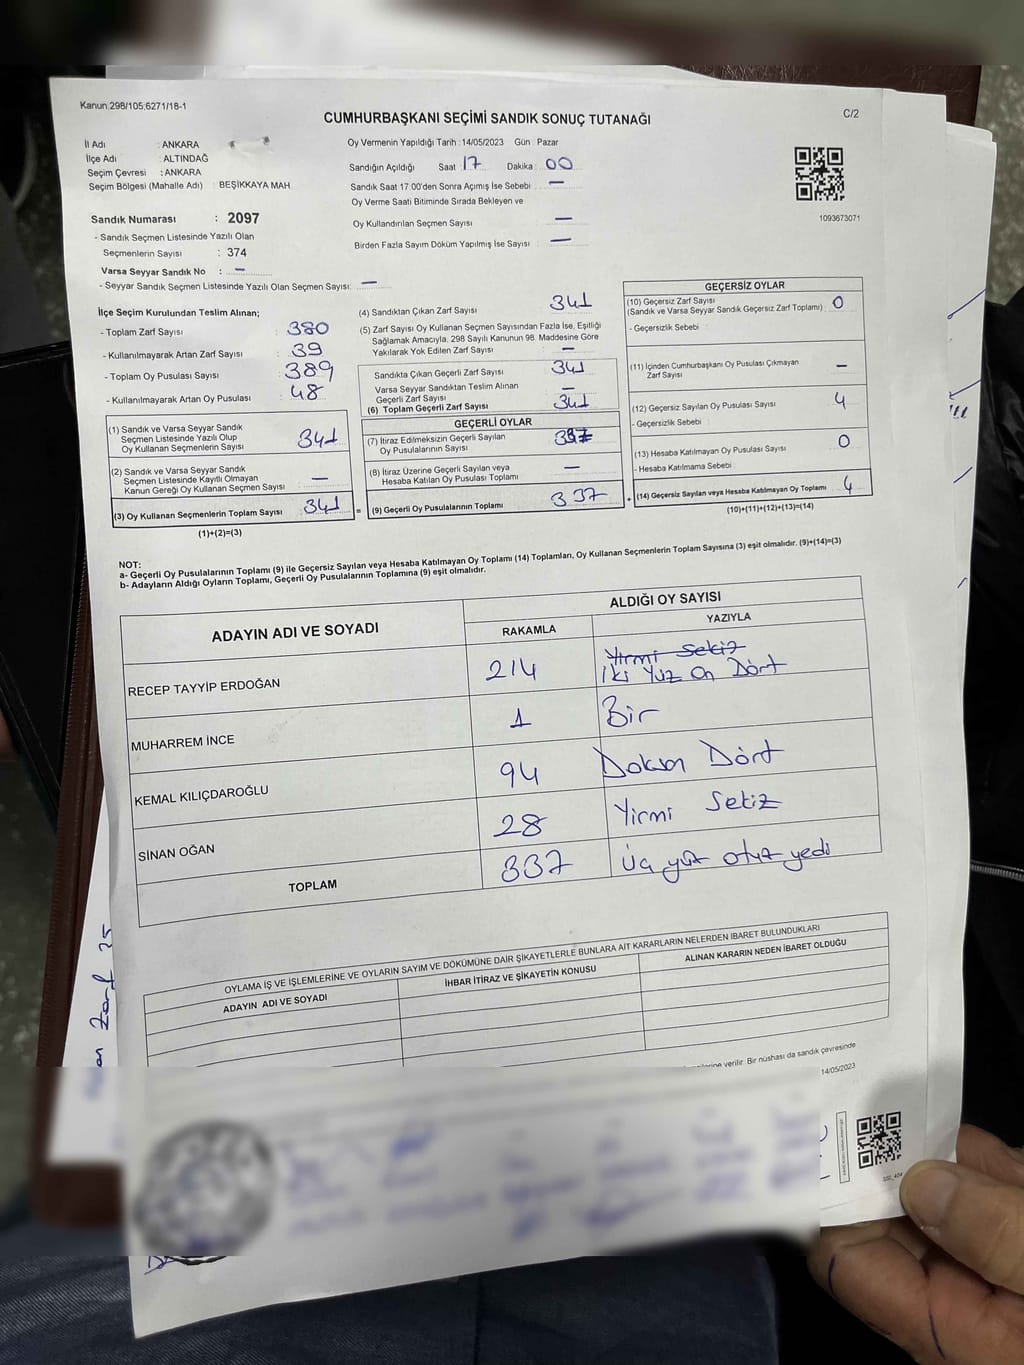 Kanun:298/105;6271/18-1
C/2
CUMHURBAŞKANI SEÇİMİ SANDIK SONUÇ TUTANAĞI
İl Adı : ANKARA
İlçe Adı : ALTINDAĞ
Seçim Çevresi : ANKARA
Seçim Bölgesi (Mahalle Adı) : BEŞİKKAYA MAH.
Sandık Numarası : 2097
- Sandık Seçmen Listesinde Yazılı Olan
Seçmenlerin Sayısı : 374
Varsa Seyyar Sandık No : -
- Seyyar Sandık Seçmen Listesinde Yazılı Olan Seçmen Sayısı: -
Oy Vermenin Yapıldığı Tarih : 14/05/2023 Gün : Pazar
Sandığın Açıldığı Saat : 17 Dakika : 00
Sandık Saat 17:00'den Sonra Açımış İse Sebebi : -
Oy Verme Saati Bitiminde Sırada Bekleyen ve
Oy Kullandırılan Seçmen Sayısı : -
Birden Fazla Sayım Döküm Yapılmış İse Sayısı : -
1093673071
İlçe Seçim Kurulundan Teslim Alınan;
- Toplam Zarf Sayısı : 380
- Kullanılmayarak Artan Zarf Sayısı : 39
- Toplam Oy Pusulası Sayısı : 389
- Kullanılmayarak Artan Oy Pusulası : 48
(1) Sandık ve Varsa Seyyar Sandık
Seçmen Listesinde Yazılı Olup
Oy Kullanan Seçmenlerin Sayısı 341
(2) Sandık ve Varsa Seyyar Sandık
Seçmen Listesinde Kayıtlı Olmayan
Kanun Gereği Oy Kullanan Seçmen Sayısı : -
(3) Oy Kullanan Seçmenlerin Toplam Sayısı 341
(1)+(2)=(3)
(4) Sandıktan Çıkan Zarf Sayısı 341
(5) Zarf Sayısı Oy Kullanan Seçmen Sayısından Fazla İse, Eşitliği
Sağlamak Amacıyla, 298 Sayılı Kanunun 98. Maddesine Göre
Yakılarak Yok Edilen Zarf Sayısı -
Sandıkta Çıkan Geçerli Zarf Sayısı 341
Varsa Seyyar Sandıktan Teslim Alınan
Geçerli Zarf Sayısı -
(6) Toplam Geçerli Zarf Sayısı 341
GEÇERLİ OYLAR
(7) İtiraz Edilmeksizin Geçerli Sayılan
Oy Pusulalarının Sayısı 337
(8) İtiraz Üzerine Geçerli Sayılan veya
Hesaba Katılan Oy Pusulası Toplamı -
= (9) Geçerli Oy Pusulalarının Toplamı 337
GEÇERSİZ OYLAR
(10) Geçersiz Zarf Sayısı
(Sandık ve Varsa Seyyar Sandık Geçersiz Zarf Toplamı) 0
- Geçersizlik Sebebi :
(11) İçinden Cumhurbaşkanı Oy Pusulası Çıkmayan
Zarf Sayısı -
(12) Geçersiz Sayılan Oy Pusulası Sayısı 4
- Geçersizlik Sebebi :
(13) Hesaba Katılmayan Oy Pusulası Sayısı 0
- Hesaba Katılmama Sebebi :
+ (14) Geçersiz Sayılan veya Hesaba Katılmayan Oy Toplamı 4
(10)+(11)+(12)+(13)=(14)
NOT:
a- Geçerli Oy Pusulalarının Toplamı (9) ile Geçersiz Sayılan veya Hesaba Katılmayan Oy Toplamı (14) Toplamları, Oy Kullanan Seçmenlerin Toplam Sayısına (3) eşit olmalıdır. (9)+(14)=(3)
b- Adayların Aldığı Oyların Toplamı, Geçerli Oy Pusulalarının Toplamına (9) eşit olmalıdır.
ADAYIN ADI VE SOYADI
ALDIĞI OY SAYISI
RAKAMLA YAZIYLA
Yirmi Sekiz
RECEP TAYYİP ERDOĞAN 214 İki Yüz On Dört
MUHARREM İNCE 1 Bir
KEMAL KILIÇDAROĞLU 94 Doksan Dört
SİNAN OĞAN 28 Yirmi Sekiz
TOPLAM 337 Üç yüz otuz yedi
OYLAMA İŞ VE İŞLEMLERİNE VE OYLARIN SAYIM VE DÖKÜMÜNE DAİR ŞİKAYETLERLE BUNLARA AİT KARARLARIN NELERDEN İBARET BULUNDUKLARI
ADAYIN ADI VE SOYADI İHBAR İTİRAZ VE ŞİKAYETİN KONUSU ALINAN KARARIN NEDEN İBARET OLDUĞU
verilir. Bir nüshası da sandık çevresinde
14/05/2023
Zarf 35